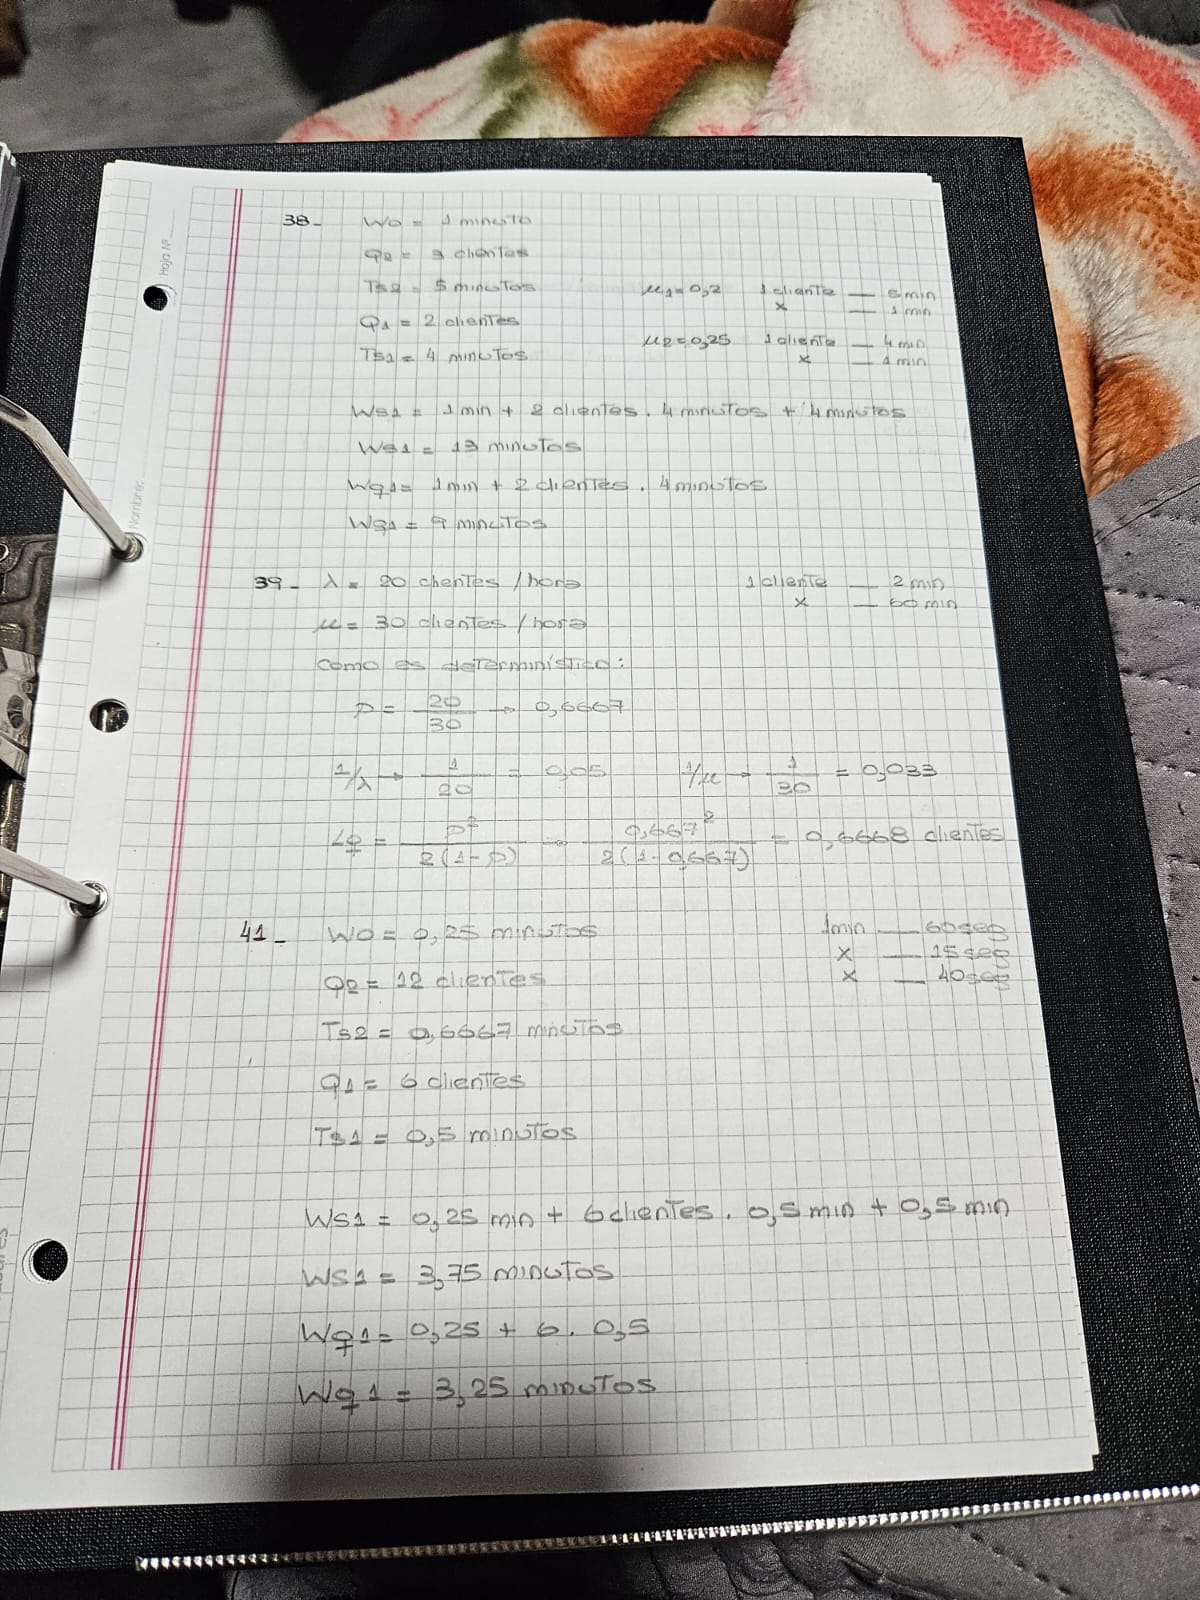 Hoja Nº
Nombre:
38- W0 = 1 minuto
Q2 = 3 clientes
Ts2 = 5 minutos μ1=0,2 1 cliente — 5 min
x — 1 min
Q1 = 2 clientes
μ2=0,25 1 cliente — 4 min
Ts1 = 4 minutos x — 1 min
Ws1 = 1 min + 2 clientes . 4 minutos + 4 minutos
Ws1 = 13 minutos
Wq1= 1 min + 2 clientes . 4 minutos
Wq1 = 9 minutos
39- λ = 20 clientes / hora 1 cliente — 2 min
x — 60 min
μ = 30 clientes / hora
como es determinístico:
ρ = 20/30 → 0,6667
1/λ → 1/20 = 0,05 1/μ → 1/30 = 0,033
Lq = ρ²/2(1-ρ) → 0,667²/2(1-0,667) = 0,6668 clientes
41- W0 = 0,25 minutos 1min — 60 seg
x — 15 seg
x — 40 seg
Q2 = 12 clientes
Ts2 = 0,6667 minutos
Q1 = 6 clientes
Ts1 = 0,5 minutos
Ws1 = 0,25 min + 6 clientes . 0,5 min + 0,5 min
Ws1 = 3,75 minutos
Wq1= 0,25 + 6 . 0,5
Wq1 = 3,25 minutos